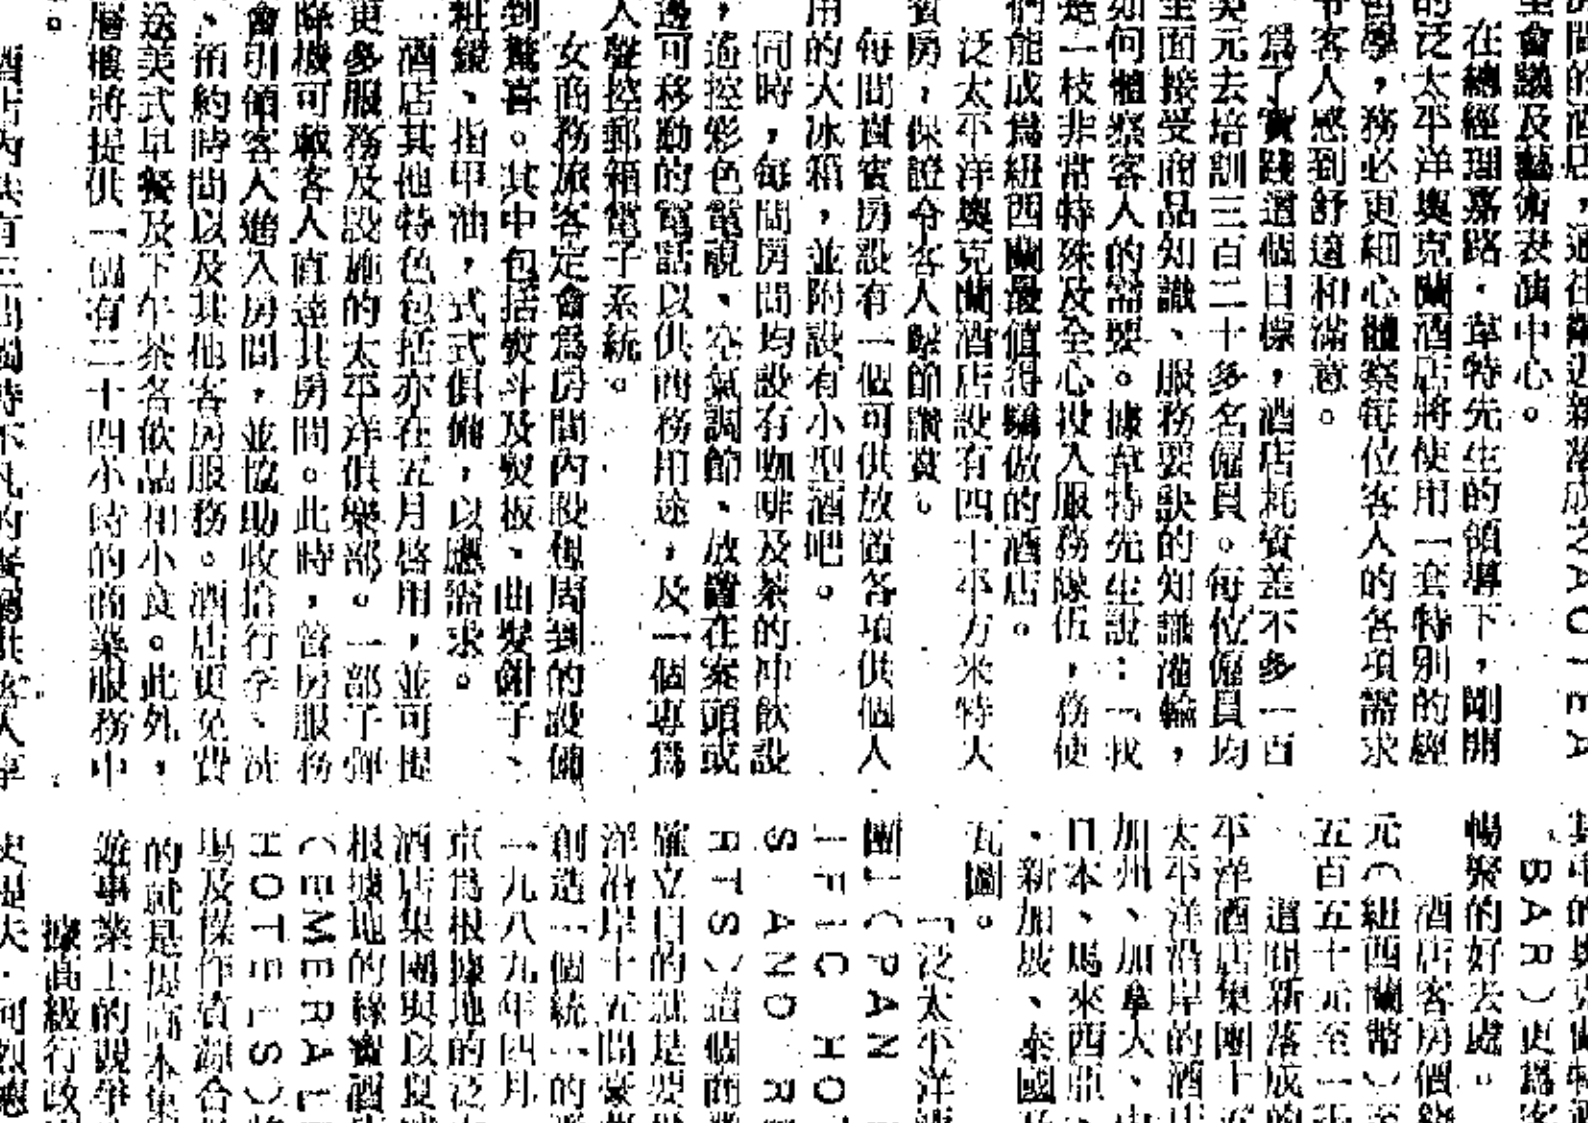 房間的酒店，通往鄰近新落成之AOTEA
會議及藝術表演中心。
在總經理嘉路．韋特先生的領導下，剛開
的泛太平洋奧克蘭酒店將使用一套特別的經
哲學，務必更細心體察每位客人的各項需求
令客人感到舒適和滿意。
爲了實踐這個目標，酒店耗資差不多一百
美元去培訓三百二十多名僱員。每位僱員均
全面接受商品知識、服務要訣的知識灌輸，
如何體察客人的需要。據韋特先生說：「我
是一枝非常特殊及全心投入服務隊伍，務使
們能成爲紐西蘭最值得驕傲的酒店。
泛太平洋奧克蘭酒店設有四十平方米特大
賓房，保證令客人擊節讚賞。
每間賓房設有一個可供放置各項供個人
用的大冰箱，並附設有小型酒吧。
同時，每間房間均設有咖啡及茶的冲飲設
遙控彩色電視、空氣調節、放置在案頭或
邊可移動的電話以供商務用途，及一個專爲
人聲控郵箱電子系統。
女商務旅客定會爲房間內設想周到的設備
到驚喜。其中包括熨斗及熨板、曲髮鉗子、
粧鏡、指甲油，式式俱備，以應需求。
酒店其他特色包括亦在五月啓用，並可提
更多服務及設施的太平洋俱樂部。一部子彈
降機可載客人直達其房間。此時，管房服務
會引領客人進入房間，並協助收拾行李、
、預約時間以及其他客房服務。酒店更免費
送美式早餐及下午茶各飲品和小食。此外，
層樓將提供一個有二十四小時的商業服務中
BAR）更爲客
暢聚的好去處。
酒店客房價
元（紐西蘭幣）至
五百五十元至一
這間新落成的
平洋酒店集團十五
太平洋沿岸的酒店
加州、加拿大、
日本、馬來西亞、
、新加坡、泰國及
瓦圖。
「泛太平洋
團」（PAN
IFIC HO
S AND R
RTS）這個商
確立目的就是要
洋沿岸十五間豪
創造一個統一的
一九八九年四月
京爲根據地的泛
酒店集團與以夏
根據地的綠寶酒
（EMERAL
HOTELS）
場及操作資源合
的就是提高本集
遊事業上的競爭
據高級行政